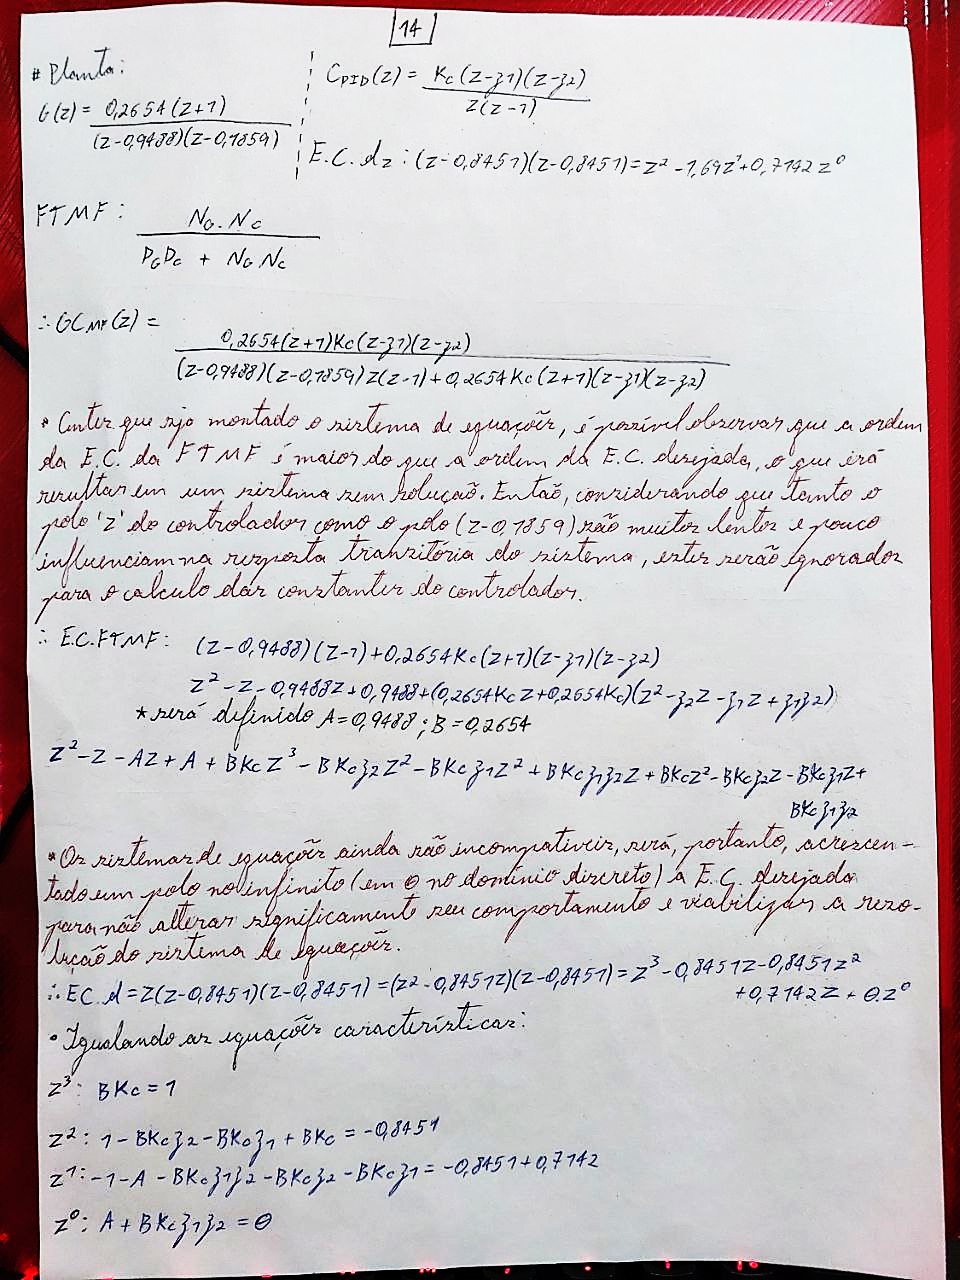 14
# Planta:
G(z) = 0,2654(z+1) / (z-0,9488)(z-0,1859)
CPID(z) = Kc(z-z1)(z-z2) / z(z-1)
E.C. dz: (z-0,8451)(z-0,8451) = z² -1,69z¹+0,7142 z⁰
FTMF: NG.NC / DGDC + NG.NC
∴ GCMF(z) = 0,2654(z+1)Kc(z-z1)(z-z2) / (z-0,9488)(z-0,1859)z(z-1)+0,2654Kc(z+1)(z-z1)(z-z2)
* Antes que seja montado o sistema de equações, é possível observar que a ordem
da E.C. da FTMF é maior do que a ordem da E.C. desejada, o que irá
resultar em um sistema sem solução. Então, considerando que tanto o
polo 'z' do controlador como o polo (z-0,1859) são muitos lentos e pouco
influenciam na resposta transitória do sistema, estes serão ignorados
para o calculo das constantes do controlador.
∴ E.C.FTMF: (z-0,9488)(z-1)+0,2654Kc(z+1)(z-z1)(z-z2)
z²-z-0,9488z+0,9488+(0,2654Kcz+0,2654Kc)(z²-z2z-z1z+z1z2)
* será definido A=0,9488; B=0,2654
z²-z-Az+A+BKcz³-BKcz2z²-BKcz1z²+BKcz1z2z+BKcz²-BKcz2z-BKcz1z+
BKcz1z2
* Os sistemas de equações ainda são incompativeis, será, portanto, acrescen-
tado um polo no infinito (em 0 no domínio discreto) a E.C. desejada
para não alterar significamente seu comportamento e viabilizar a reso-
lução do sistema de equações.
∴ EC.d=z(z-0,8451)(z-0,8451)=(z²-0,8451z)(z-0,8451)=z³-0,8451z-0,8451z²
+0,7142z + 0.z⁰
• Igualando as equações características:
z³: BKc = 1
z²: 1-BKcz2-BKcz1+BKc = -0,8451
z¹: -1-A-BKcz1z2-BKcz2-BKcz1 = -0,8451+0,7142
z⁰: A+BKcz1z2 = 0